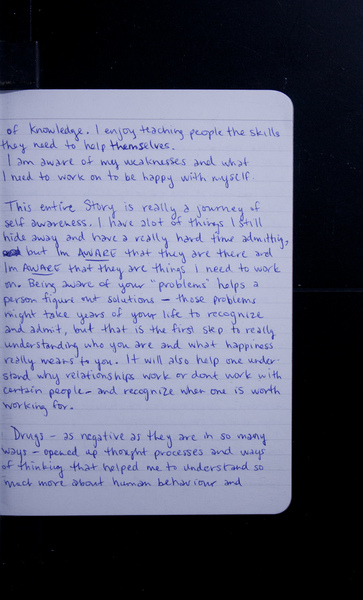 of knowledge. I enjoy teaching people the skills
they need to help themselves.
I am aware of my weaknesses and what
I need to work on to be happy with myself.
This entire Story is really a journey of
self awareness. I have alot of things I still
hide away and have a really hard time admittig,
but Im AWARE that they are there and
Im AWARE that they are things I need to work
on. Being aware of your "problems" helps a
person figure out solutions - those problems
might take years of your life to recognize
and admit, but that is the first step to really
understanding who you are and what happiness
really means to you. It will also help one under-
stand why relationships work or dont work with
certain people - and recognize when one is worth
working for.
Drugs - as negative as they are in so many
ways - opened up thought processes and ways
of thinking that helped me to understand so
much more about human behaviour and